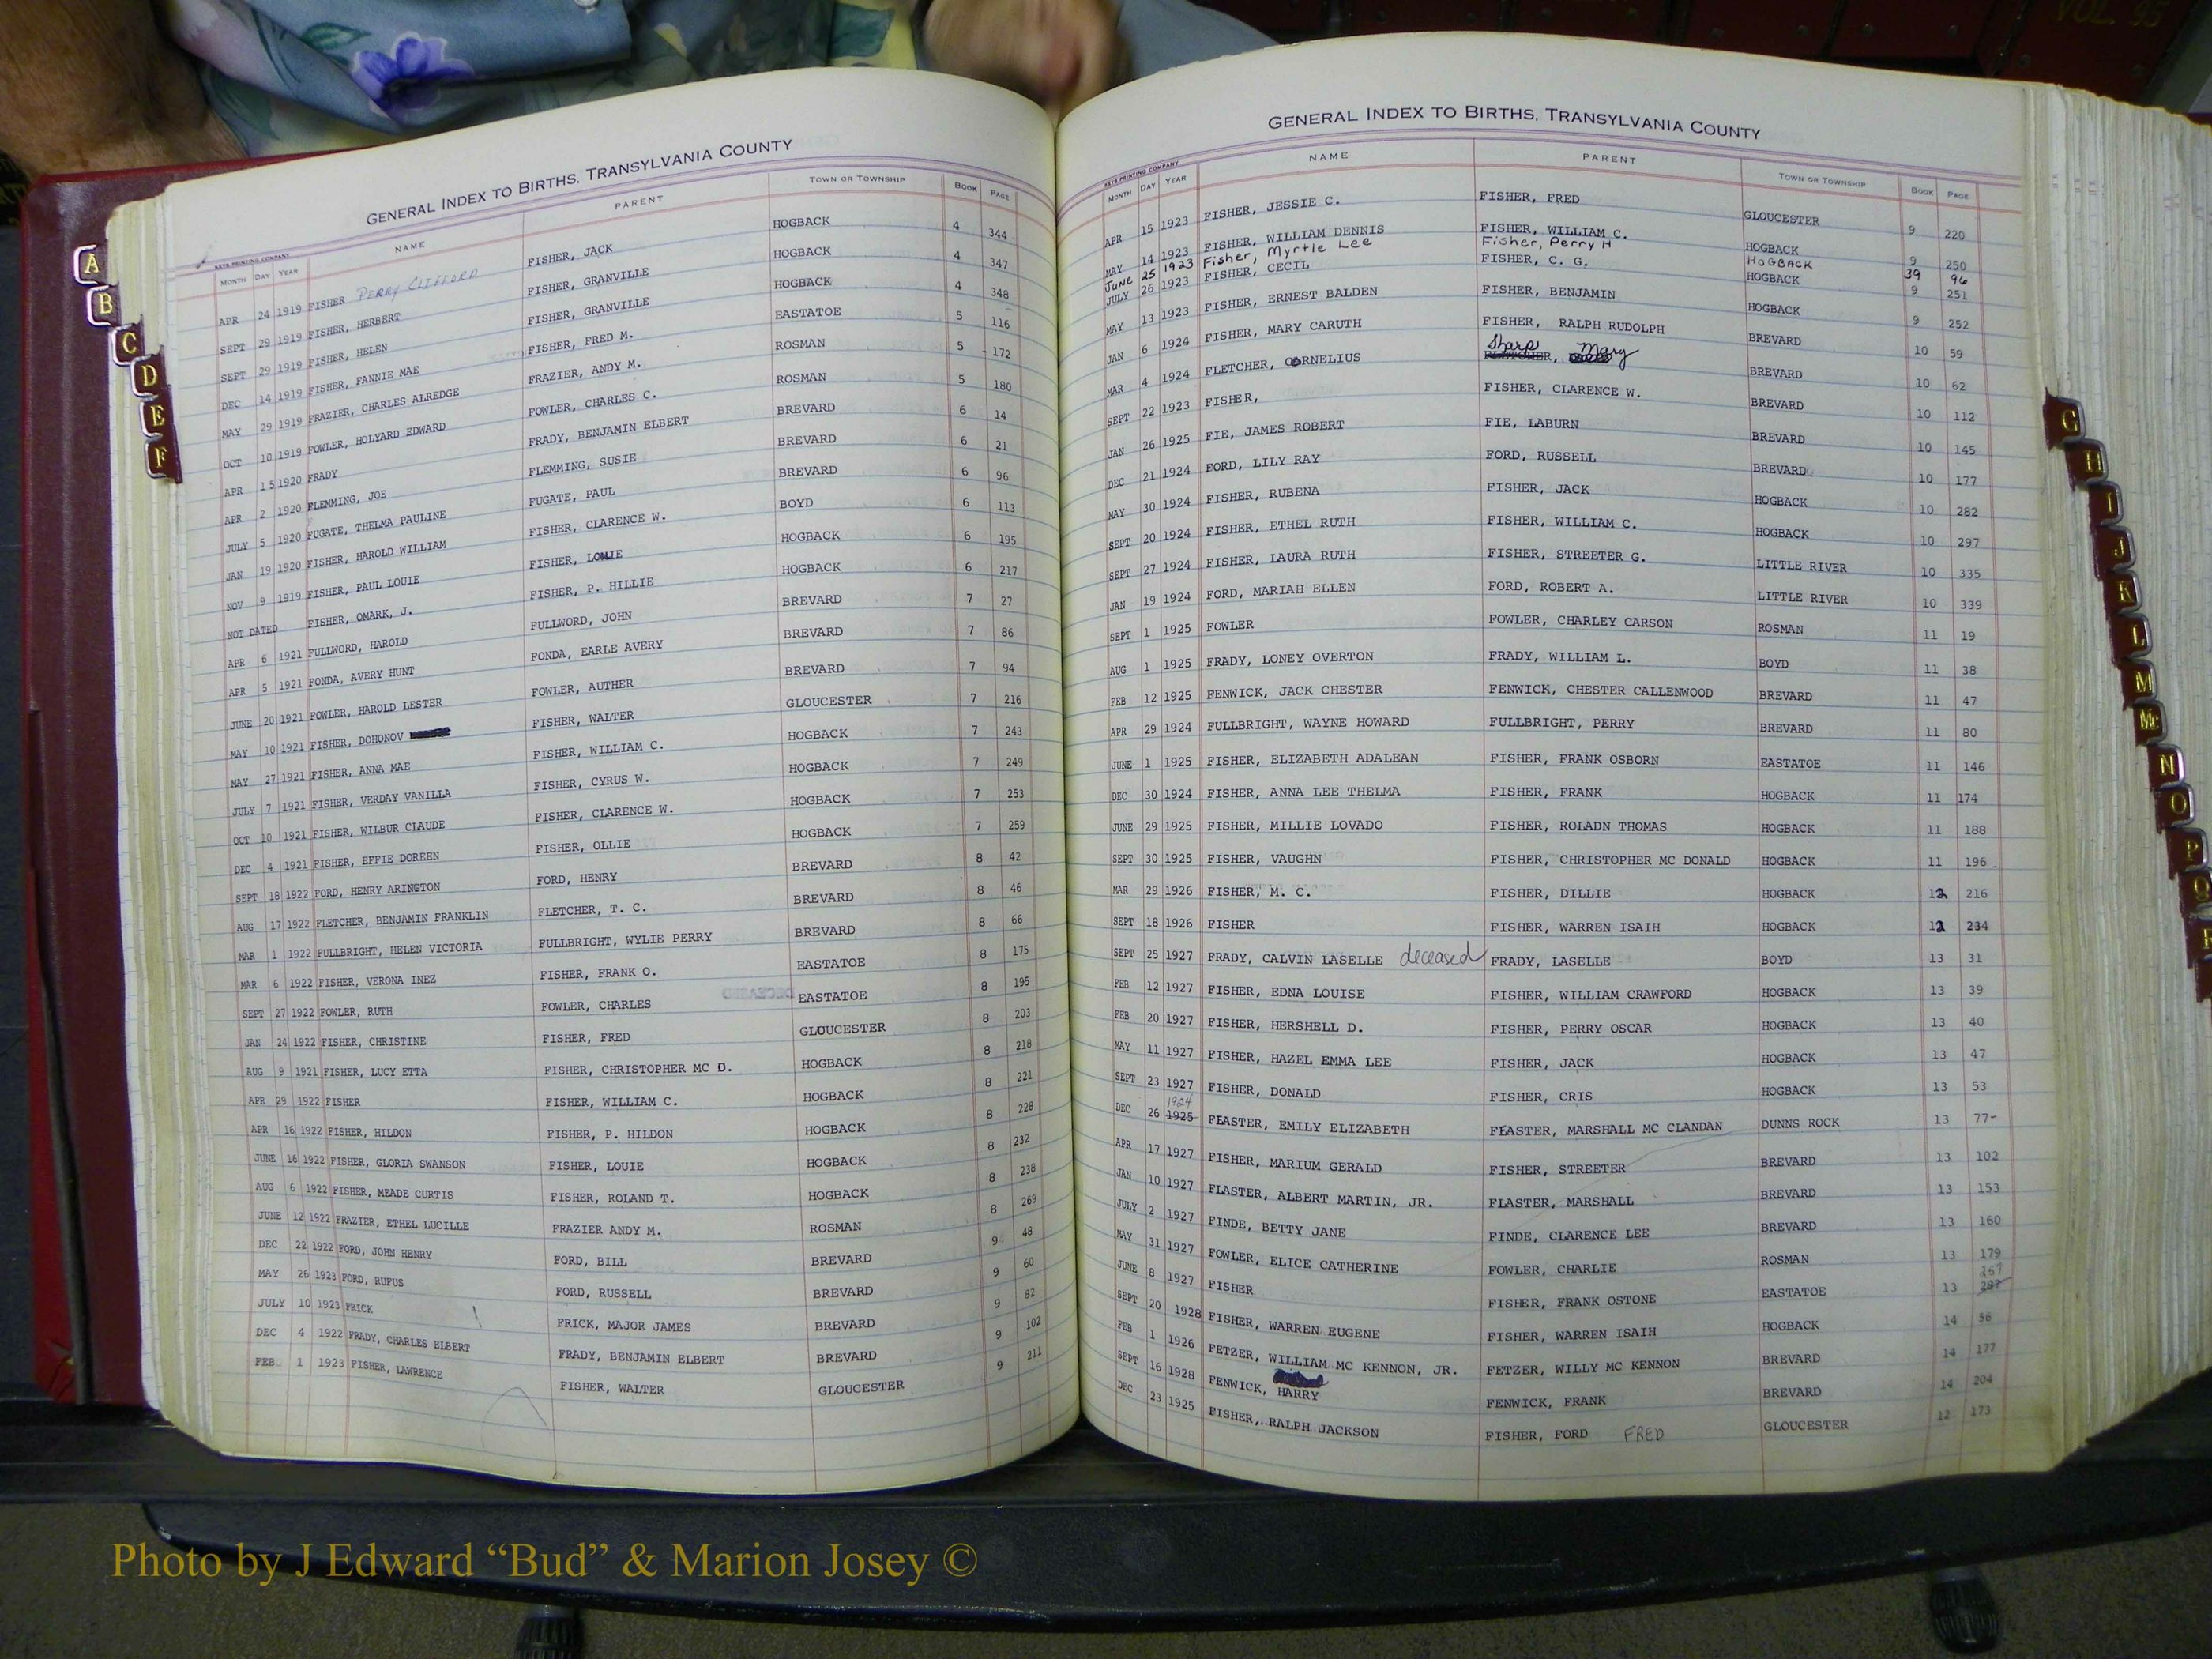 GENERAL INDEX TO BIRTHS, TRANSYLVANIA COUNTY
KEYS PRINTING COMPANY
MONTH DAY YEAR NAME PARENT TOWN OR TOWNSHIP BOOK PAGE
APR 24 1919 FISHER Perry Clifford FISHER, JACK HOGBACK 4 344
SEPT 29 1919 FISHER, HERBERT FISHER, GRANVILLE HOGBACK 4 347
SEPT 29 1919 FISHER, HELEN FISHER, GRANVILLE HOGBACK 4 348
DEC 14 1919 FISHER, FANNIE MAE FISHER, FRED M. EASTATOE 5 116
MAY 29 1919 FRAZIER, CHARLES ALREDGE FRAZIER, ANDY M. ROSMAN 5 172
OCT 10 1919 FOWLER, HOLYARD EDWARD FOWLER, CHARLES C. ROSMAN 5 180
APR 15 1920 FRADY FRADY, BENJAMIN ELBERT BREVARD 6 14
APR 2 1920 FLEMMING, JOE FLEMMING, SUSIE BREVARD 6 21
JULY 5 1920 FUGATE, THELMA PAULINE FUGATE, PAUL BREVARD 6 96
JAN 19 1920 FISHER, HAROLD WILLIAM FISHER, CLARENCE W. BOYD 6 113
NOV 9 1919 FISHER, PAUL LOUIE FISHER, LOUIE HOGBACK 6 195
NOT DATED FISHER, OMARK, J. FISHER, P. HILLIE HOGBACK 6 217
APR 6 1921 FULLWORD, HAROLD FULLWORD, JOHN BREVARD 7 27
APR 5 1921 FONDA, AVERY HUNT FONDA, EARLE AVERY BREVARD 7 86
JUNE 20 1921 FOWLER, HAROLD LESTER FOWLER, AUTHER BREVARD 7 94
MAY 10 1921 FISHER, DOHONOV FISHER, WALTER GLOUCESTER 7 216
MAY 27 1921 FISHER, ANNA MAE FISHER, WILLIAM C. HOGBACK 7 243
JULY 7 1921 FISHER, VERDAY VANILLA FISHER, CYRUS W. HOGBACK 7 249
OCT 10 1921 FISHER, WILBUR CLAUDE FISHER, CLARENCE W. HOGBACK 7 253
DEC 4 1921 FISHER, EFFIE DOREEN FISHER, OLLIE HOGBACK 7 259
SEPT 18 1922 FORD, HENRY ARINGTON FORD, HENRY BREVARD 8 42
AUG 17 1922 FLETCHER, BENJAMIN FRANKLIN FLETCHER, T. C. BREVARD 8 46
MAR 1 1922 FULLBRIGHT, HELEN VICTORIA FULLBRIGHT, WYLIE PERRY BREVARD 8 66
MAR 6 1922 FISHER, VERONA INEZ FISHER, FRANK O. EASTATOE 8 175
SEPT 27 1922 FOWLER, RUTH FOWLER, CHARLES EASTATOE 8 195
JAN 24 1922 FISHER, CHRISTINE FISHER, FRED GLOUCESTER 8 203
AUG 9 1921 FISHER, LUCY ETTA FISHER, CHRISTOPHER MC D. HOGBACK 8 218
APR 29 1922 FISHER FISHER, WILLIAM C. HOGBACK 8 221
APR 16 1922 FISHER, HILDON FISHER, P. HILDON HOGBACK 8 228
JUNE 16 1922 FISHER, GLORIA SWANSON FISHER, LOUIE HOGBACK 8 232
AUG 6 1922 FISHER, MEADE CURTIS FISHER, ROLAND T. HOGBACK 8 238
JUNE 12 1922 FRAZIER, ETHEL LUCILLE FRAZIER ANDY M. ROSMAN 8 269
DEC 22 1922 FORD, JOHN HENRY FORD, BILL BREVARD 9 48
MAY 26 1923 FORD, RUFUS FORD, RUSSELL BREVARD 9 60
JULY 10 1923 FRICK FRICK, MAJOR JAMES BREVARD 9 82
DEC 4 1922 FRADY, CHARLES ELBERT FRADY, BENJAMIN ELBERT BREVARD 9 102
FEB 1 1923 FISHER, LAWRENCE FISHER, WALTER GLOUCESTER 9 211
A
B
C
D
E
F
GENERAL INDEX TO BIRTHS, TRANSYLVANIA COUNTY
KEYS PRINTING COMPANY
MONTH DAY YEAR NAME PARENT TOWN OR TOWNSHIP BOOK PAGE
APR 15 1923 FISHER, JESSIE C. FISHER, FRED GLOUCESTER 9 220
MAY 14 1923 FISHER, WILLIAM DENNIS FISHER, WILLIAM C. HOGBACK 9 250
June 25 1923 Fisher, Myrtle Lee Fisher, Perry H HOGBACK 39 96
JULY 26 1923 FISHER, CECIL FISHER, C. G. HOGBACK 9 251
MAY 13 1923 FISHER, ERNEST BALDEN FISHER, BENJAMIN HOGBACK 9 252
JAN 6 1924 FISHER, MARY CARUTH FISHER, RALPH RUDOLPH BREVARD 10 59
MAR 4 1924 FLETCHER, CORNELIUS Sharp FLETCHER, Mary BREVARD 10 62
SEPT 22 1923 FISHER, FISHER, CLARENCE W. BREVARD 10 112
JAN 26 1925 FIE, JAMES ROBERT FIE, LABURN BREVARD 10 145
DEC 21 1924 FORD, LILY RAY FORD, RUSSELL BREVARD 10 177
MAY 30 1924 FISHER, RUBENA FISHER, JACK HOGBACK 10 282
SEPT 20 1924 FISHER, ETHEL RUTH FISHER, WILLIAM C. HOGBACK 10 297
SEPT 27 1924 FISHER, LAURA RUTH FISHER, STREETER G. LITTLE RIVER 10 335
JAN 19 1924 FORD, MARIAH ELLEN FORD, ROBERT A. LITTLE RIVER 10 339
SEPT 1 1925 FOWLER FOWLER, CHARLEY CARSON ROSMAN 11 19
AUG 1 1925 FRADY, LONEY OVERTON FRADY, WILLIAM L. BOYD 11 38
FEB 12 1925 FENWICK, JACK CHESTER FENWICK, CHESTER CALLENWOOD BREVARD 11 47
APR 29 1924 FULLBRIGHT, WAYNE HOWARD FULLBRIGHT, PERRY BREVARD 11 80
JUNE 1 1925 FISHER, ELIZABETH ADALEAN FISHER, FRANK OSBORN EASTATOE 11 146
DEC 30 1924 FISHER, ANNA LEE THELMA FISHER, FRANK HOGBACK 11 174
JUNE 29 1925 FISHER, MILLIE LOVADO FISHER, ROLADN THOMAS HOGBACK 11 188
SEPT 30 1925 FISHER, VAUGHN FISHER, CHRISTOPHER MC DONALD HOGBACK 11 196
MAR 29 1926 FISHER, M. C. FISHER, DILLIE HOGBACK 12 216
SEPT 18 1926 FISHER FISHER, WARREN ISAIH HOGBACK 12 234
SEPT 25 1927 FRADY, CALVIN LASELLE deceased FRADY, LASELLE BOYD 13 31
FEB 12 1927 FISHER, EDNA LOUISE FISHER, WILLIAM CRAWFORD HOGBACK 13 39
FEB 20 1927 FISHER, HERSHELL D. FISHER, PERRY OSCAR HOGBACK 13 40
MAY 11 1927 FISHER, HAZEL EMMA LEE FISHER, JACK HOGBACK 13 47
SEPT 23 1927 FISHER, DONALD FISHER, CRIS HOGBACK 13 53
DEC 26 1924 1925 FEASTER, EMILY ELIZABETH FEASTER, MARSHALL MC CLANDAN DUNNS ROCK 13 77-
APR 17 1927 FISHER, MARIUM GERALD FISHER, STREETER BREVARD 13 102
JAN 10 1927 FLASTER, ALBERT MARTIN, JR. FLASTER, MARSHALL BREVARD 13 153
JULY 2 1927 FINDE, BETTY JANE FINDE, CLARENCE LEE BREVARD 13 160
MAY 31 1927 FOWLER, ELICE CATHERINE FOWLER, CHARLIE ROSMAN 13 179
JUNE 8 1927 FISHER FISHER, FRANK OSTONE EASTATOE 13 287 257
SEPT 20 1928 FISHER, WARREN EUGENE FISHER, WARREN ISAIH HOGBACK 14 56
FEB 1 1926 FETZER, WILLIAM MC KENNON, JR. FETZER, WILLY MC KENNON BREVARD 14 177
SEPT 16 1928 FENWICK, HARRY FENWICK, FRANK BREVARD 14 204
DEC 23 1925 FISHER, RALPH JACKSON FISHER, FORD FRED GLOUCESTER 12 173
G
H
I
J
K
L
M
Mc
N
O
P
Q
R
VOL. 95
Photo by J Edward “Bud” & Marion Josey ©